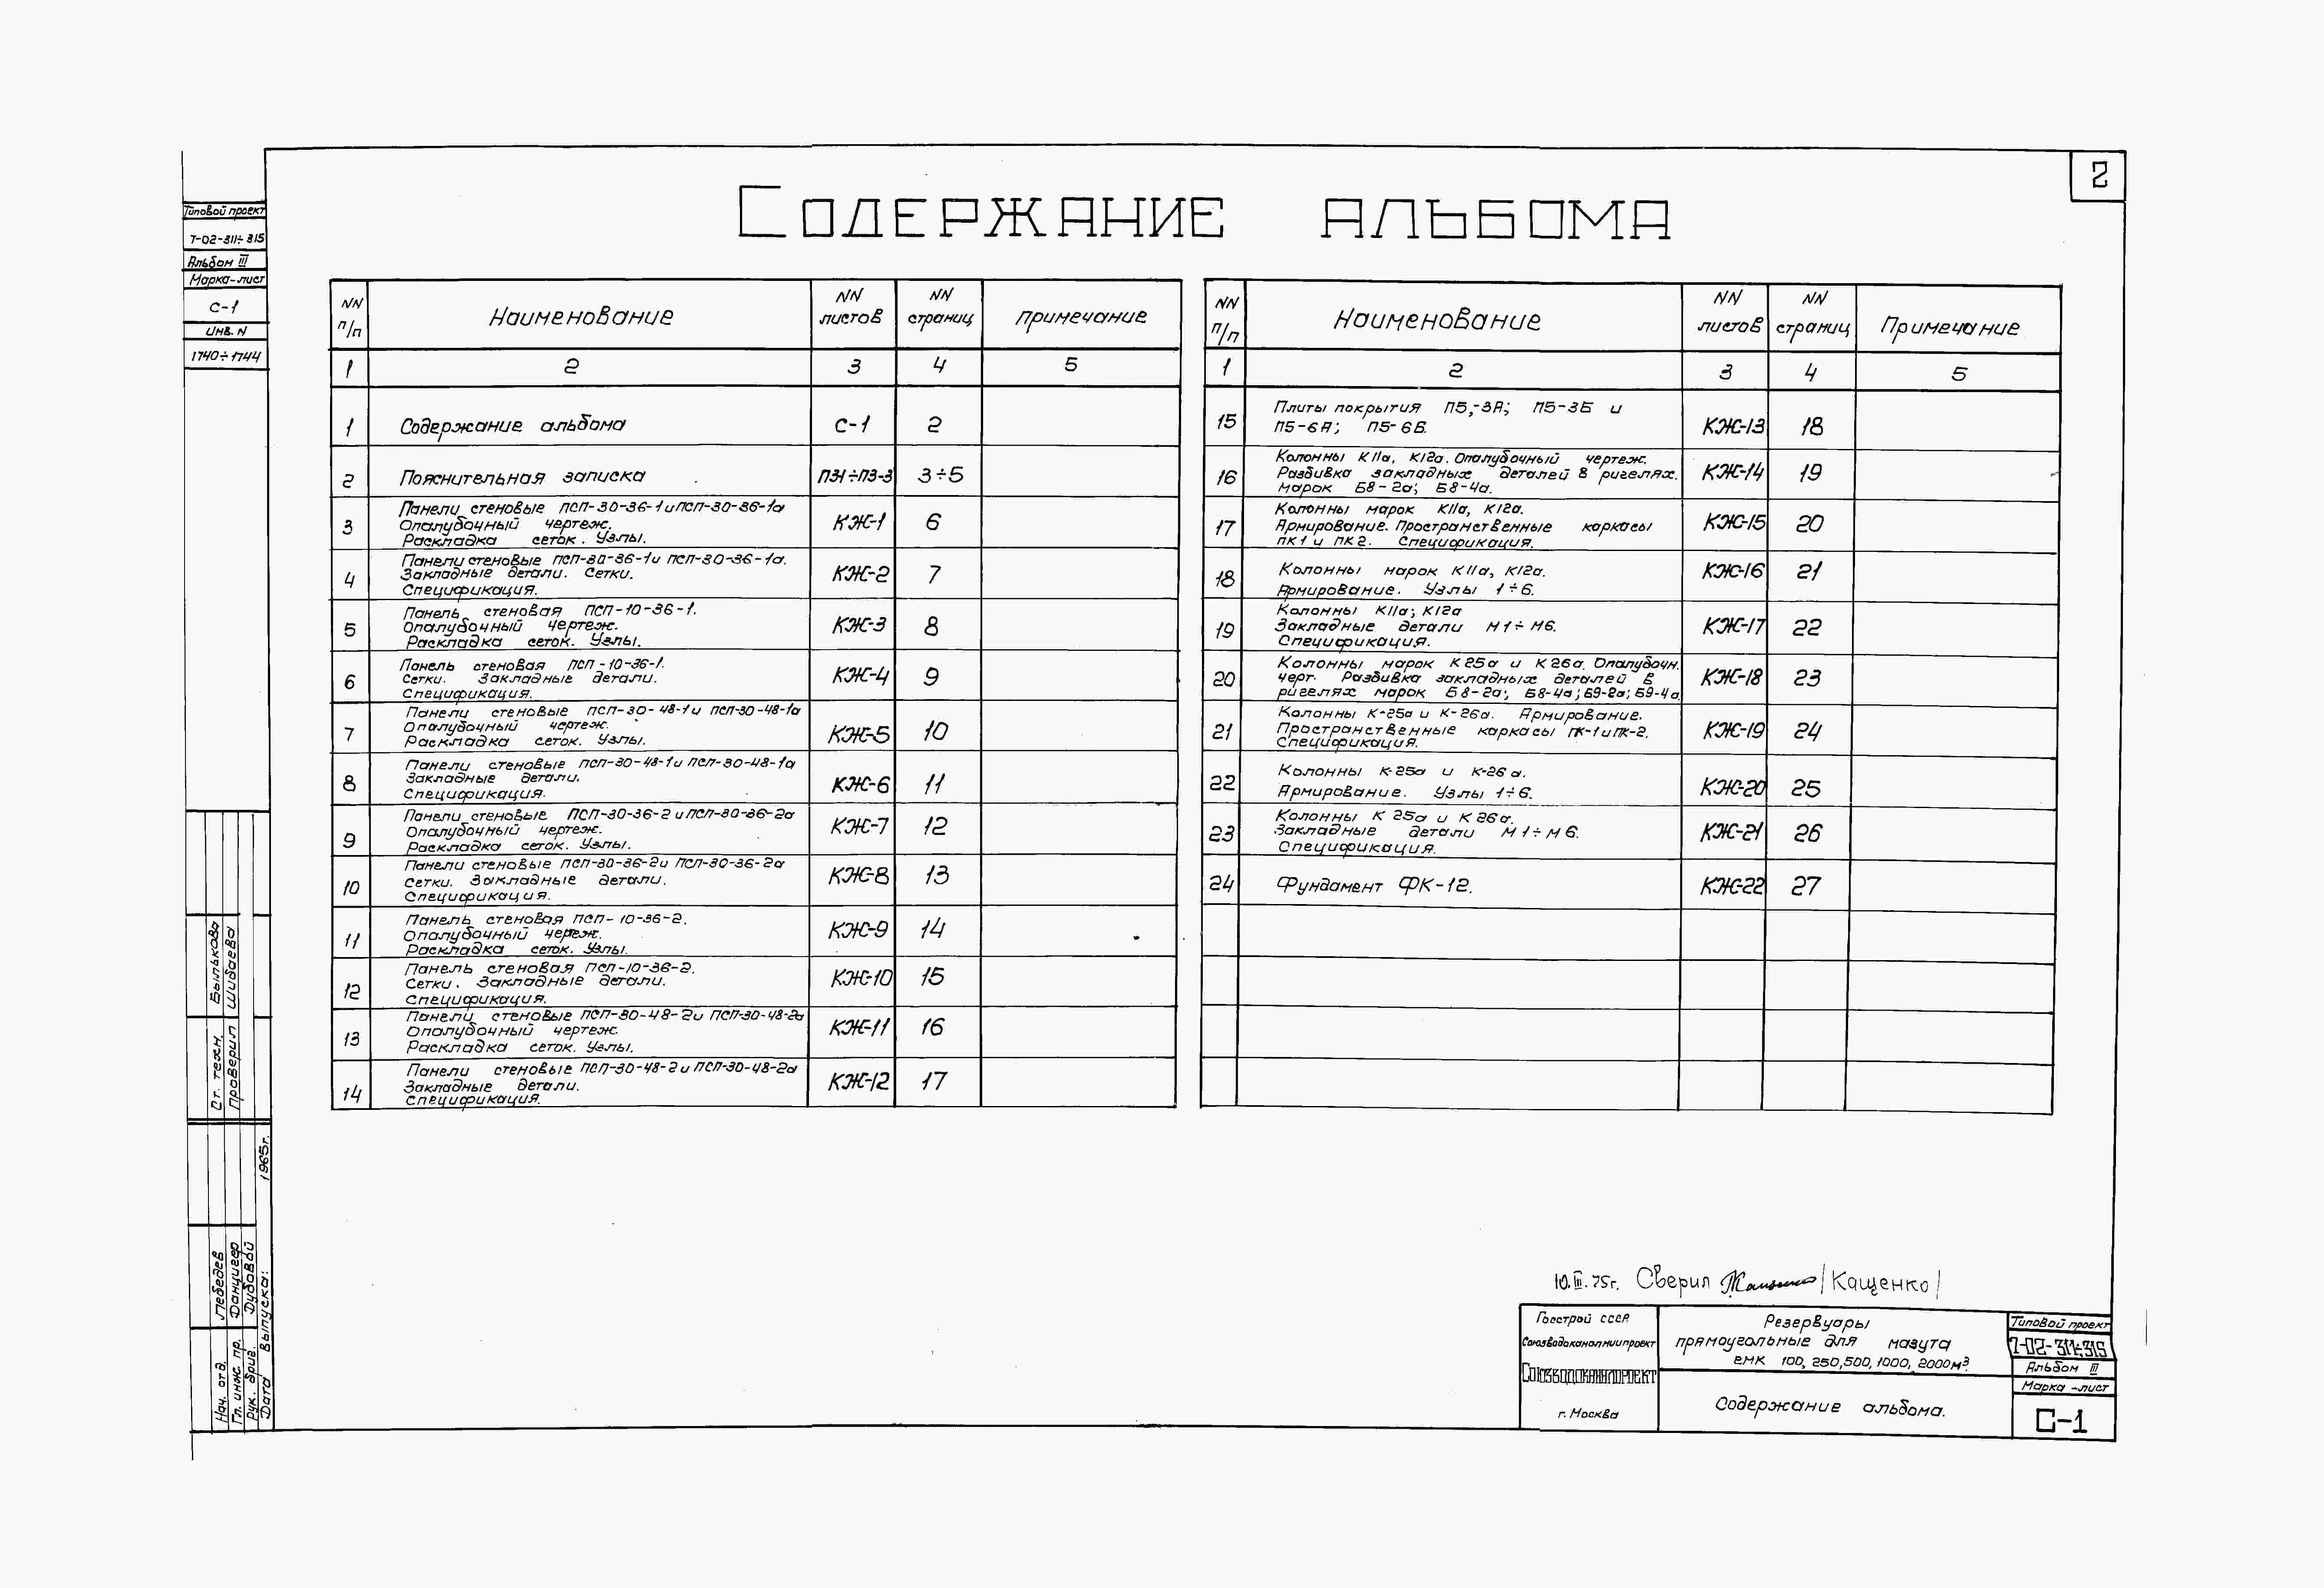 2
Содержание альбома
Типовой проект
7-02-311÷315
Альбом III
Марка-лист
С-1
Инв. N
1740÷1744
NN п/п
Наименование
NN листов
NN страниц
примечание
1 2 3 4 5
1 Содержание альбома С-1 2
2 Пояснительная записка ПЗ1÷ПЗ-3 3÷5
Панели стеновые ПСП-30-36-1 и ПСП-30-36-1а
Опалубочный чертеж.
3 КЖ-1 6
Раскладка сеток. Узлы.
Панели стеновые ПСП-30-36-1 и ПСП-30-36-1а.
Закладные детали. Сетки.
4 КЖ-2 7
Спецификация.
Панель стеновая ПСП-10-36-1.
Опалубочный чертеж.
5 КЖ-3 8
Раскладка сеток. Узлы.
Панель стеновая ПСП-10-36-1.
Сетки. Закладные детали.
6 КЖ-4 9
Спецификация.
Панели стеновые ПСП-30-48-1 и ПСП-30-48-1а
Опалубочный чертеж.
7 КЖ-5 10
Раскладка сеток. Узлы.
Панели стеновые ПСП-30-48-1 и ПСП-30-48-1а
Закладные детали.
8 КЖ-6 11
Спецификация.
Панели стеновые ПСП-30-36-2 и ПСП-30-36-2а
Опалубочный чертеж.
9 КЖ-7 12
Раскладка сеток. Узлы.
Панели стеновые ПСП-30-36-2 и ПСП-30-36-2а
Сетки. Закладные детали.
10 КЖ-8 13
Спецификация.
Панель стеновая ПСП-10-36-2.
Опалубочный чертеж.
11 КЖ-9 14
Раскладка сеток. Узлы.
Панель стеновая ПСП-10-36-2.
Сетки. Закладные детали.
12 КЖ-10 15
Спецификация.
Панели стеновые ПСП-30-48-2 и ПСП-30-48-2а
Опалубочный чертеж.
13 КЖ-11 16
Раскладка сеток. Узлы.
Панели стеновые ПСП-30-48-2 и ПСП-30-48-2а
Закладные детали.
14 КЖ-12 17
Спецификация.
NN п/п
Наименование
NN листов
NN страниц
Примечание
1 2 3 4 5
Плиты покрытия П5-3А; П5-3Б и
15 П5-6А; П5-6Б. КЖ-13 18
Колонны К11а, К12а. Опалубочный чертеж.
16 Разбивка закладных деталей в ригелях. КЖ-14 19
марок Б8-2а; Б8-4а.
Колонны марок К11а, К12а.
17 Армирование. Пространственные каркасы КЖ-15 20
ПК1 и ПК2. Спецификация.
18 Колонны марок К11а, К12а. КЖ-16 21
Армирование. Узлы 1÷6.
Колонны К11а; К12а
19 Закладные детали М1÷М6. КЖ-17 22
Спецификация.
Колонны марок К25а и К26а. Опалубочн.
20 черт. Разбивка закладных деталей в КЖ-18 23
ригелях марок Б8-2а; Б8-4а; Б9-2а; Б9-4а
Колонны К-25а и К-26а. Армирование.
21 Пространственные каркасы ПК-1 и ПК-2. КЖ-19 24
Спецификация.
22 Колонны К-25а и К-26а. КЖ-20 25
Армирование. Узлы 1÷6.
Колонны К25а и К26а.
23 Закладные детали М1÷М6. КЖ-21 26
Спецификация.
24 Фундамент ФК-12. КЖ-22 27
Ст. техн. Былькова
Проверил Шибаева
Нач. отд. Лебедев
Гл. инж. пр. Данцигер
Рук. бриг. Дубовой
Дата выпуска: 1965г.
10.III.75г. Сверил /Кащенко/
Госстрой СССР
Союзводоканалниипроект
Союзводоканалпроект
г. Москва
Резервуары
прямоугольные для мазута
емк 100, 250, 500, 1000, 2000м³.
Содержание альбома.
Типовой проект
7-02-311÷315
Альбом III
Марка-лист
С-1